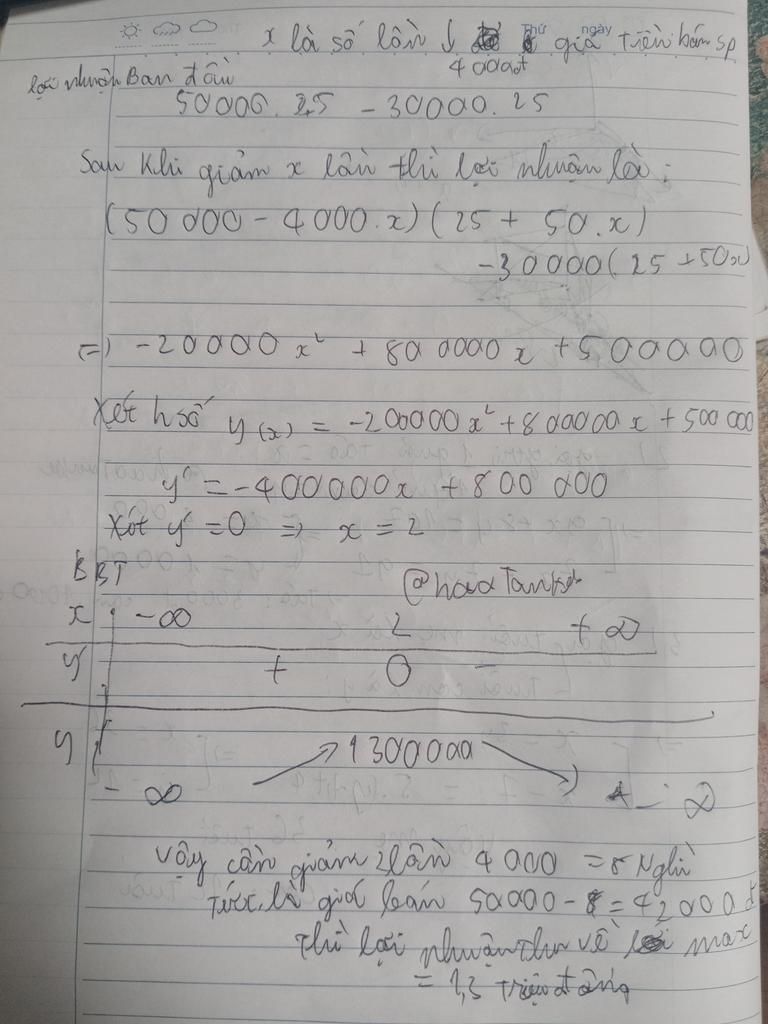 x là số lần ↓ giá tiền bán sp
Thứ ngày
4000đ
lợi nhuận Ban đầu
50000. 25 - 30000. 25
Sau khi giảm x lần thì lợi nhuận là:
(50 000 - 4000.x)(25 + 50.x)
-30000(25 + 50x)
(=) -20000 x² + 800000x + 500000
Xét h số y(x) = -200000x² + 800000x + 500 000
y' = -400000x + 800 000
Xét y' = 0 => x = 2
BBT
x -∞ 2 +∞
y' + 0 -
y 1300000
-∞ -∞
Vậy cần giảm 2 lần 4000 = 8 Nghìn
tức là giá bán 50000 - 8 = 42000đ
thì lợi nhuận thu về max
= 1,3 triệu đồng